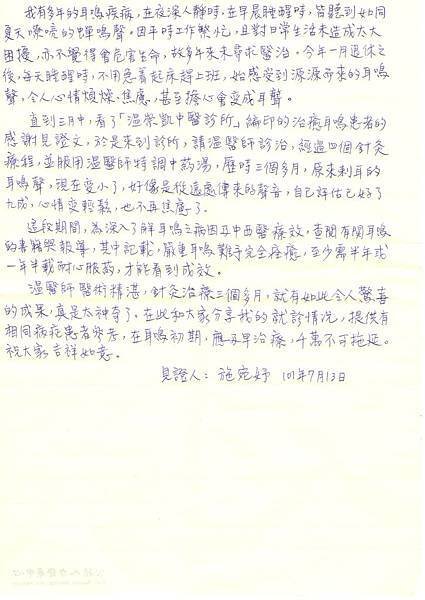 我有多年的耳鳴疾病，在夜深人靜時，在早晨睡醒時，皆聽到如同
夏天嘹喨的蟬鳴聲，因平時工作繁忙，且對日常生活未造成太大
困擾，亦不覺得會危害生命，故多年來未尋求醫治。今年一月退休之
後，每天睡醒時，不用急着起床趕上班，始感受到源源而來的耳鳴
聲，令人心情煩燥、焦慮，甚至擔心會變成耳聾。
直到三月中，看了「溫崇凱中醫診所」編印的治療耳鳴患者的
感謝見證文，於是來到診所，請溫醫師診治，經過四個針灸
療程，並服用溫醫師特調中药湯，歷時三個多月，原來刺耳的
耳鳴聲，現在變小了，好像是從遠處傳來的聲音，自己評估已好了
九成，心情變輕鬆，也不再焦慮了。
這段期間，為深入了解耳鳴之病因及中西醫療效，查閱有關耳鳴
的書籍與報導，其中記載，嚴重耳鳴難予完全痊癒，至少需半年或
一年半載耐心服药，才能看到成效。
溫醫師醫術精湛，針灸治療三個多月，就有如此令人驚喜
的成果，真是太神奇了。在此和大家分享我的就診情況，提供有
相同病症患者參考，在耳鳴初期，應及早治療，千萬不可拖延。
祝大家吉祥如意。
見證人：施宛妤 101年7月13日